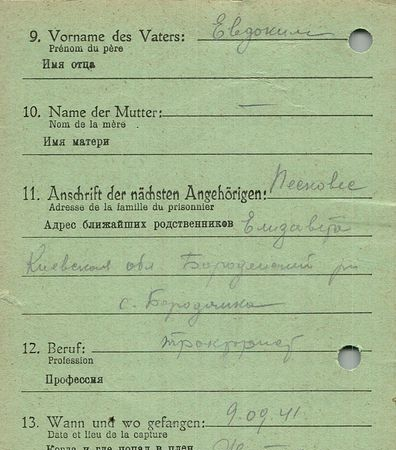 9. Vorname des Vaters: Евдоким
Prénom du père
Имя отца
10. Name der Mutter: —
Nom de la mère
Имя матери
11. Anschrift der nächsten Angehörigen: 
Adresse de la famille du prisonnier
Адрес ближайших родственников Елизавета
Киевская обл Бородянский р-н
с. Бородянка
12. Beruf: тракторист
Profession
Профессия
13. Wann und wo gefangen: 9.09.41.
Date et lieu de la capture
Когда и где попал в плен